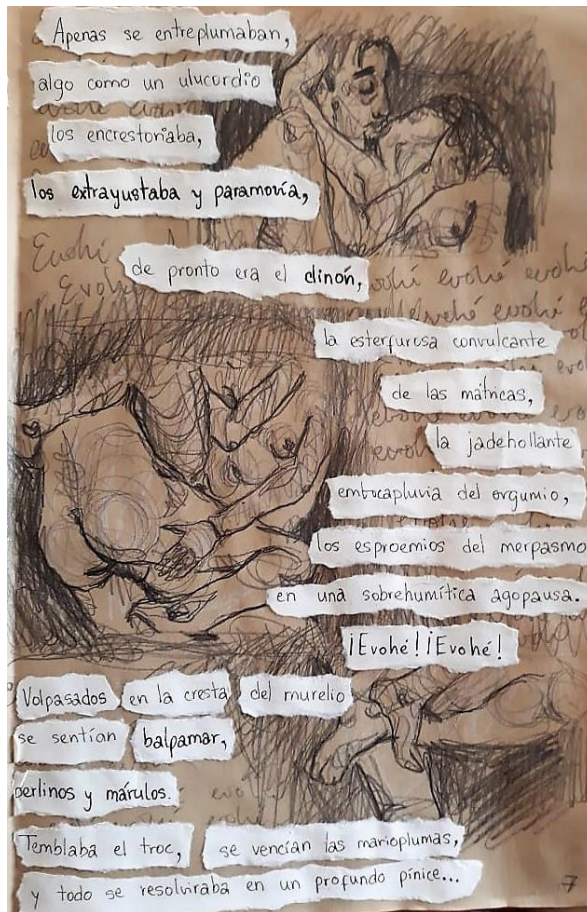 Apenas se entreplumaban,
algo como un ulucordio
los encrestoriaba,
los extrayustaba y paramovía,
Evohé evohé evohé
de pronto era el clinón,
la esterfurosa convulcante
de las mátricas,
la jadehollante
embocapluvia del orgumio,
los esproemios del merpasmo
en una sobrehumítica agopausa.
¡Evohé! ¡Evohé!
Volpasados en la cresta del murelio
se sentían balpamar,
perlinos y márulos.
Temblaba el troc, se vencían las marioplumas,
y todo se resolviraba en un profundo pínice...
7